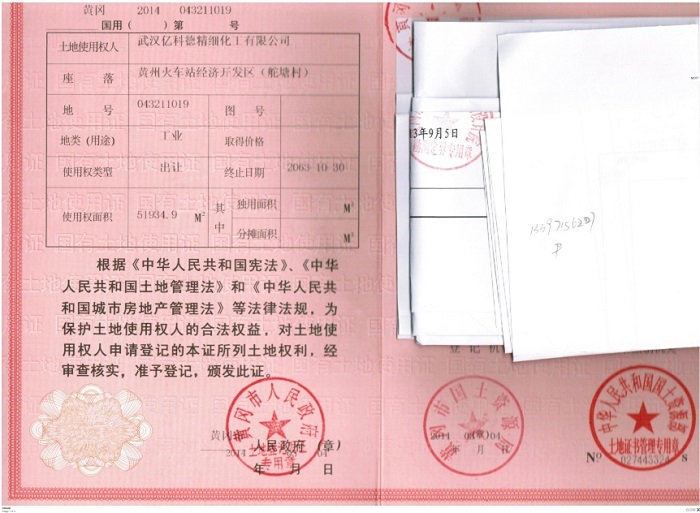 黄冈 2014 043211019
国用（ ）第 号
土地使用权人 武汉亿科德精细化工有限公司
座 落 黄州火车站经济开发区（舵塘村）
地 号 043211019 图 号
地类（用途） 工业 取得价格
使用权类型 出让 终止日期 2063-10-30
使用权面积 51934.9 M² 其中 独用面积 M²
分摊面积 M²
根据《中华人民共和国宪法》、《中华
人民共和国土地管理法》和《中华人民共
和国城市房地产管理法》等法律法规，为
保护土地使用权人的合法权益，对土地使
用权人申请登记的本证所列土地权利，经
审查核实，准予登记，颁发此证。
黄冈市人民政府
土地登记
专用章
黄冈市 人民政府（章）
2014 04
年 月 日
13年9月5日
专用章
登记机
黄冈市国土资源局
2014 04
（章）
年 月 日
中华人民共和国国土资源部
土地证书管理专用章
Nº 027443324 s